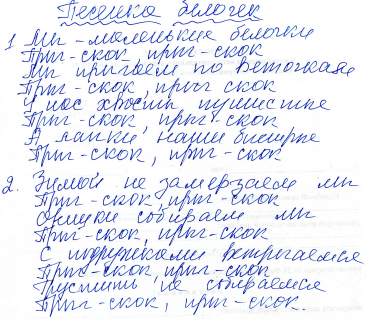 Песенка белочек
1 Мы - маленькие белочки
Прыг-скок, прыг-скок
Мы прыгаем по веточкам
Прыг-скок, прыг скок
У нас хвосты пушистые
Прыг-скок, прыг-скок
А лапки наши быстрые
Прыг-скок, прыг-скок
2. Зимой не замерзаем мы
Прыг-скок, прыг-скок
Шишки собираем мы
Прыг-скок, прыг-скок
С подружками встречаемся
Прыг-скок, прыг-скок
Грустить не собираемся
Прыг-скок, прыг-скок.